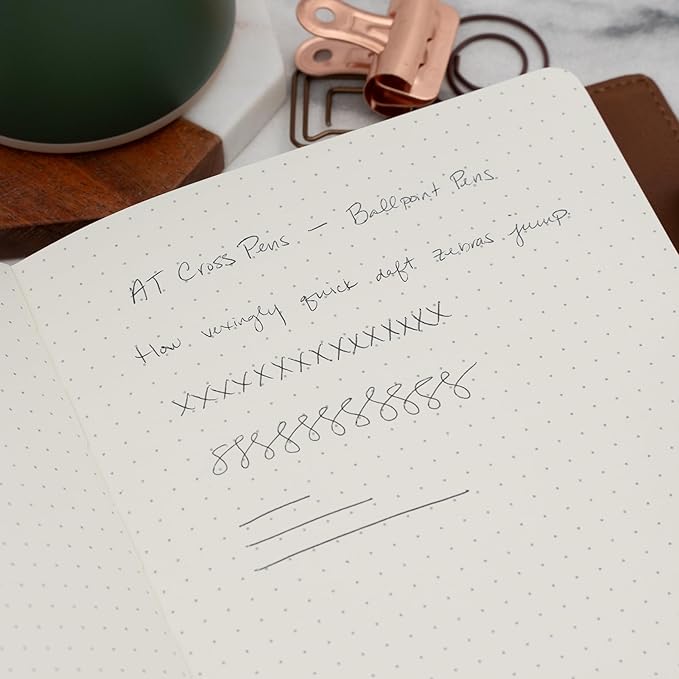 AT Cross Pens – Ballpoint Pens.
How vexingly quick daft zebras jump.
XXXXXXXXXXXXXXXX
8888888888